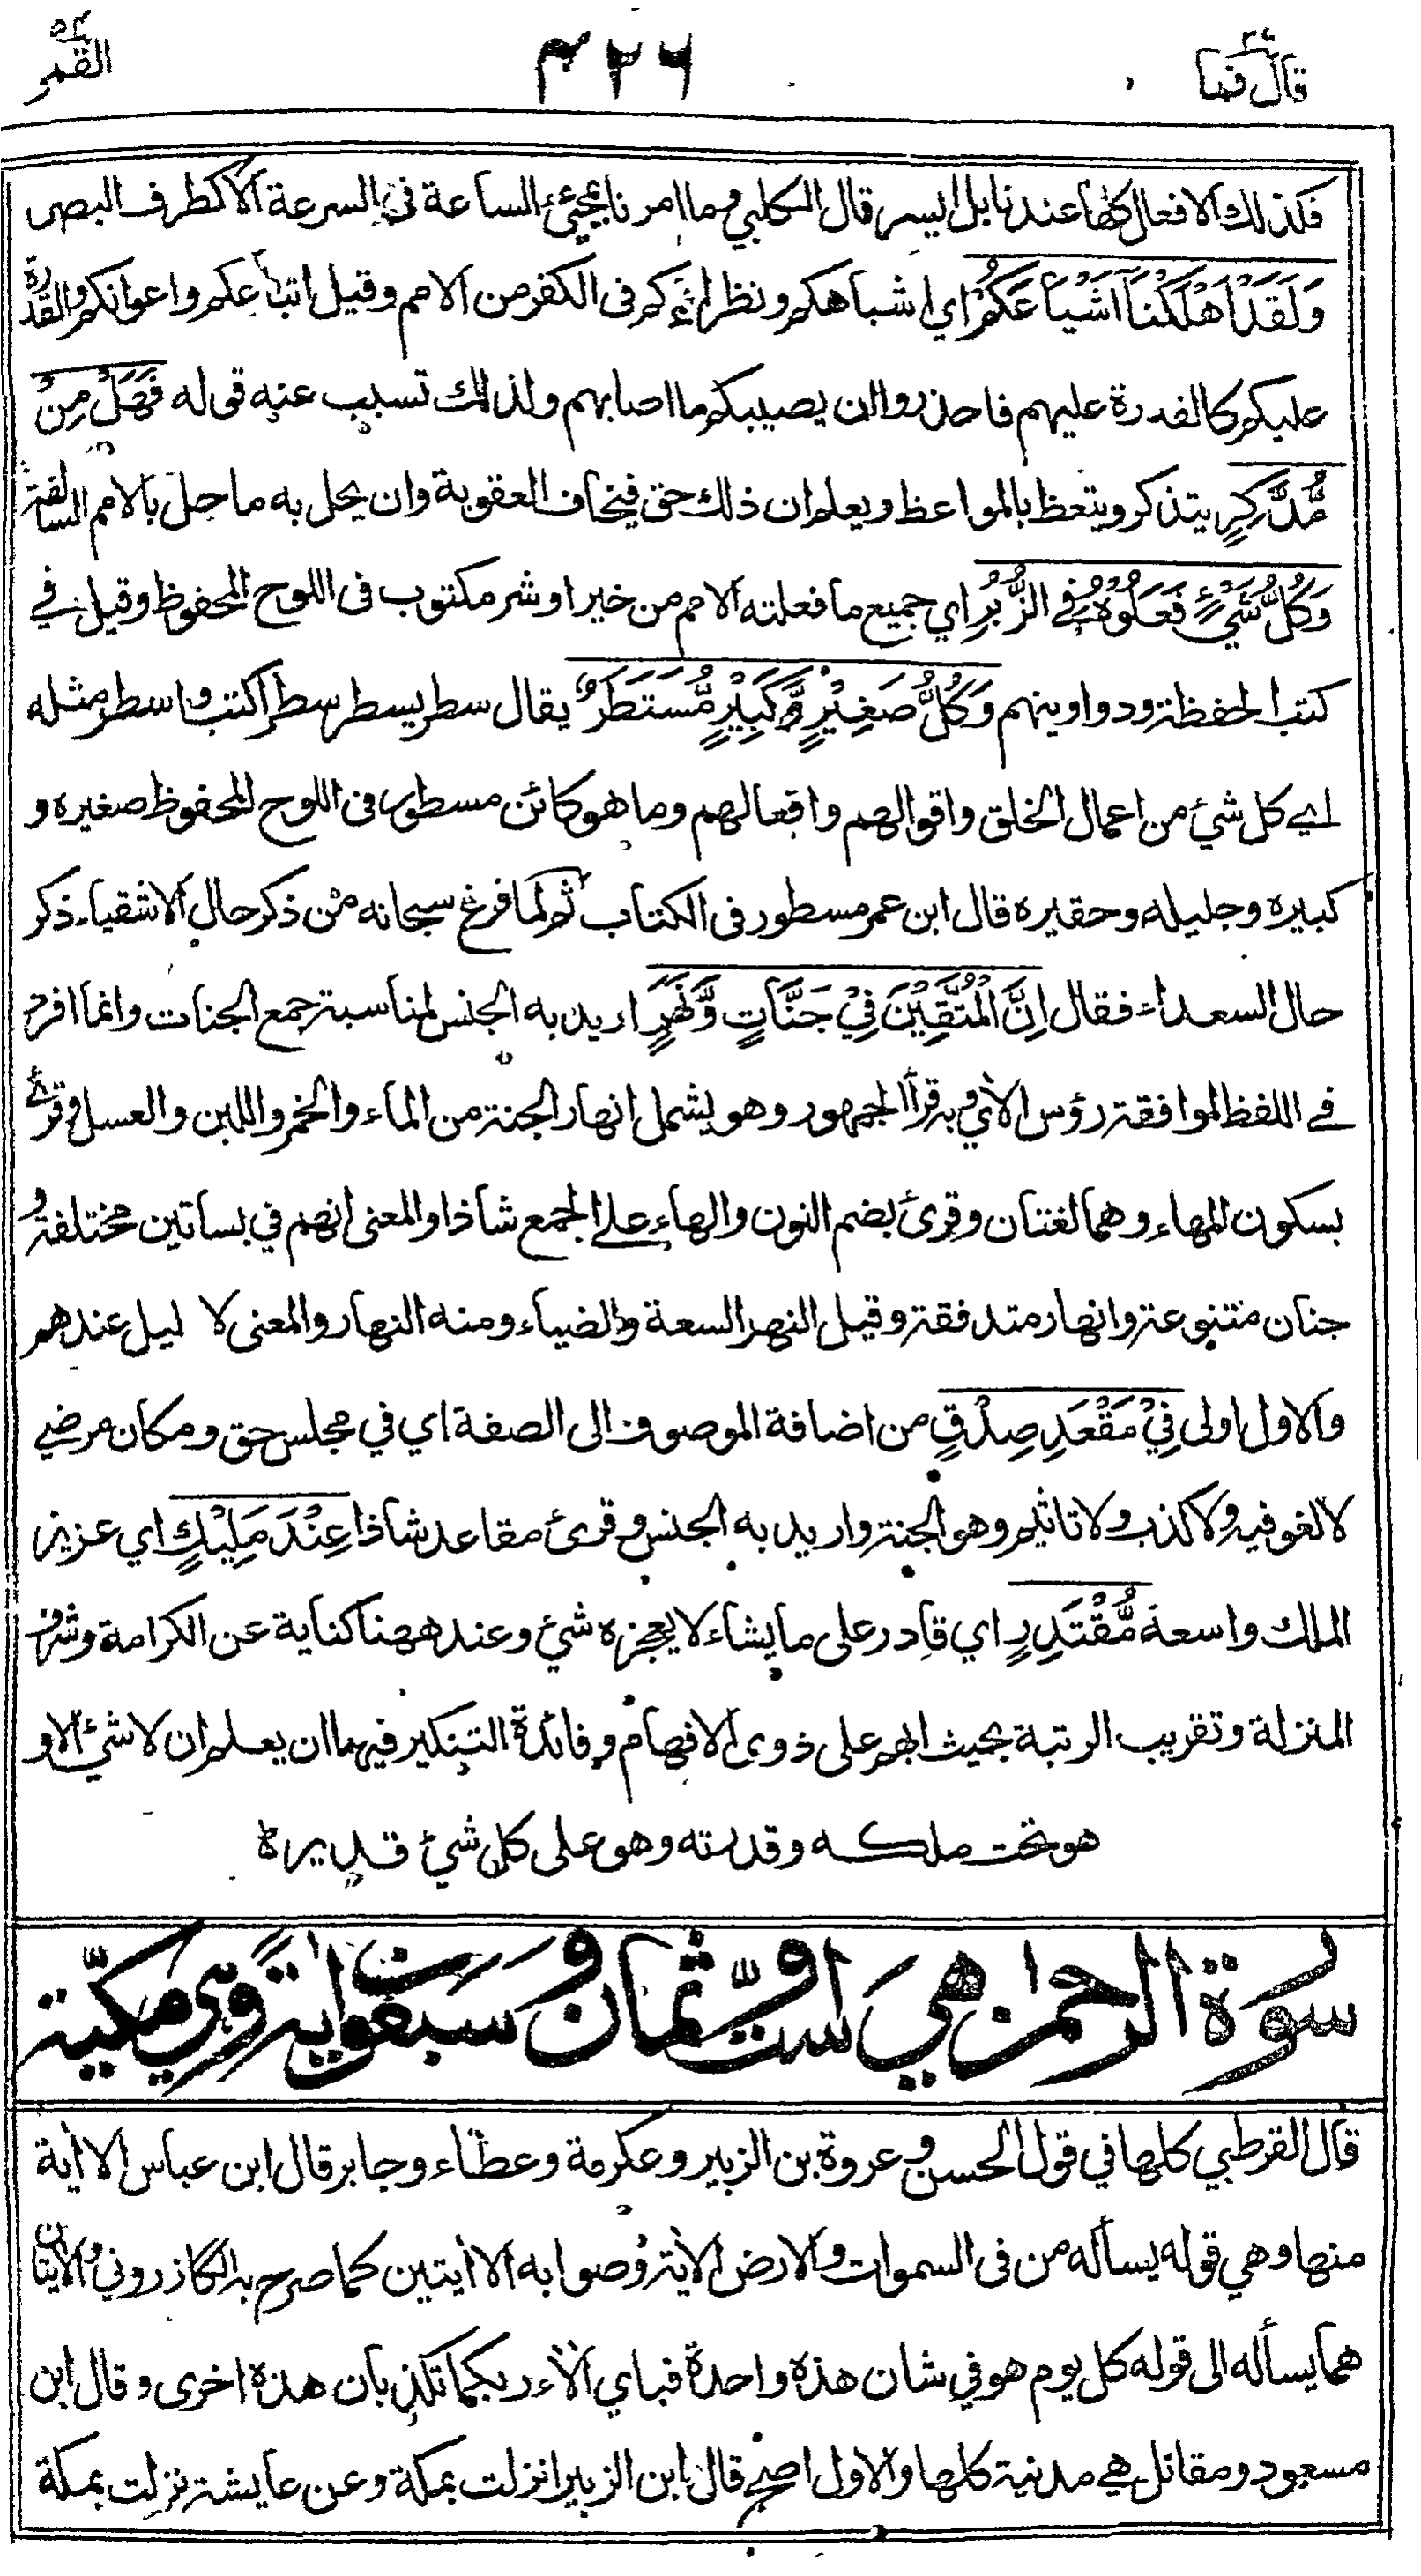 قال فما ٢٧
٣٢٦
القمر ٥٤
فكذلك الافعال كلها عندنا بل ايسر قال الكلبي وما امرنا بمجيئ الساعة في السرعة الا كطرف البصر
وَلَقَدْ اَهْلَكْنَآ اَشْيَاعَكُمْ اي اشباهكم ونظراءكم في الكفر من الامم وقيل اتباعكم واعوانكم والقدرة
عليكم كالقدرة عليهم فاحذروا ان يصيبكم ما اصابهم ولذلك تسبب عنه قوله فَهَلْ مِنْ
مُّدَّكِرٍ يتذكر ويتعظ بالمواعظ ويعلم ان ذلك حق فيخاف العقوبة وان يحل به ما حل بالامم السالفة
وَكُلُّ شَيْءٍ فَعَلُوْهُ فِي الزُّبُرِ اي جميع ما فعلته الامم من خير او شر مكتوب في اللوح المحفوظ وقيل في
كتب الحفظة ودواوينهم وَكُلُّ صَغِيْرٍ وَّكَبِيْرٍ مُّسْتَطَرٌ يقال سطر يسطر سطرا كتب واسطر مثله
اي كل شئ من اعمال الخلق واقوالهم وافعالهم وما هو كائن مسطور في اللوح المحفوظ صغيره و
كبيره وجليله وحقيره قال ابن عمر مسطور في الكتاب ثم لما فرغ سبحانه من ذكر حال الاشقياء ذكر
حال السعداء فقال اِنَّ الْمُتَّقِيْنَ فِيْ جَنّٰتٍ وَّنَهَرٍ اريد به الجنس لمناسبة جمع الجنات وانما افرد
في اللفظ لموافقة رؤس الآي وبه قرأ الجمهور وهو يشمل انهار الجنة من الماء والخمر واللبن والعسل وقرئ
بسكون الهاء وهما لغتان وقرئ بضم النون والهاء على الجمع شاذا والمعنى انهم في بساتين مختلفة و
جنان متنوعة وانهار متدفقة وقيل النهر السعة والضياء ومنه النهار والمعنى لا ليل عندهم
والاول اولى فِيْ مَقْعَدِ صِدْقٍ من اضافة الموصوف الى الصفة اي في مجلس حق ومكان مرضي
لا لغو فيه ولا كذب ولا تاثيم وهو الجنة واريد به الجنس وقرئ مقاعد شاذا عِنْدَ مَلِيْكٍ اي عزيز
الملك واسعه مُّقْتَدِرٍ اي قادر على ما يشاء لا يعجزه شئ وعند ههنا كناية عن الكرامة وشرف
المنزلة وتقريب الرتبة بحيث ابهم على ذوى الافهام وفائدة التنكير فيهما ان يعلم ان لا شئ الا و
هو تحت ملكه وقدرته وهو على كل شئ قدير ه
سورة الرحمن هي ست او ثمان وسبعون اية وهي مكيّة
قال القرطبي كلها في قول الحسن وعروة بن الزبير وعكرمة وعطاء وجابر قال ابن عباس الا اية
منها وهي قوله يسأله من في السموات والارض الاية وصوابه الا ايتين كما صرح به الكازروني والايتان
هما يسأله الى قوله كل يوم هو في شان هذه واحدة فباي الاء ربكما تكذبان هذة اخرى وقال ابن
مسعود ومقاتل هي مدنية كلها والاول اصح قال ابن الزبير انزلت بمكة وعن عايشة نزلت بمكة